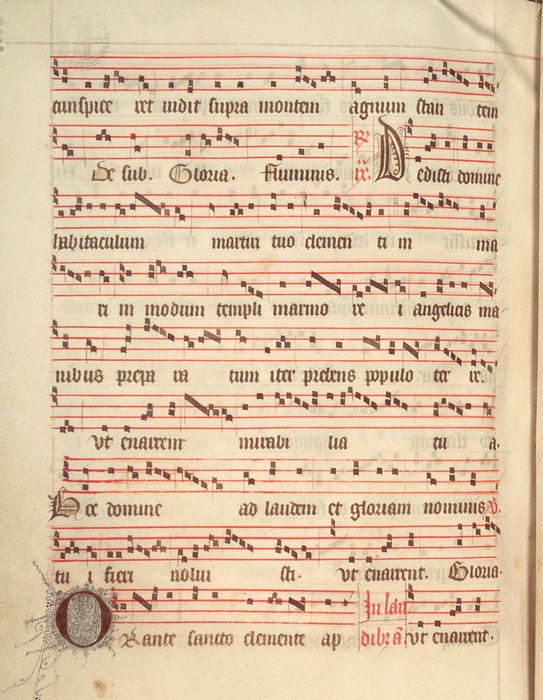 cunspice ret uidit supra montem agnum stan tem
De sub. Gloria. Fluminis. R. ix. Dedisti domine
habitaculum martiri tuo clemen ti in ma
ri in modum templi marmo re i angelicis ma
nibus prepa ra tum iter prebens populo ter re.
vt enarrent mirabi lia tu a.
Hec domine ad laudem et gloriam nominis V.
tu i fieri uolui sti. vt enarrent. Gloria.
Orante sancto clemente ap In lau
dibz a vt enarrent.